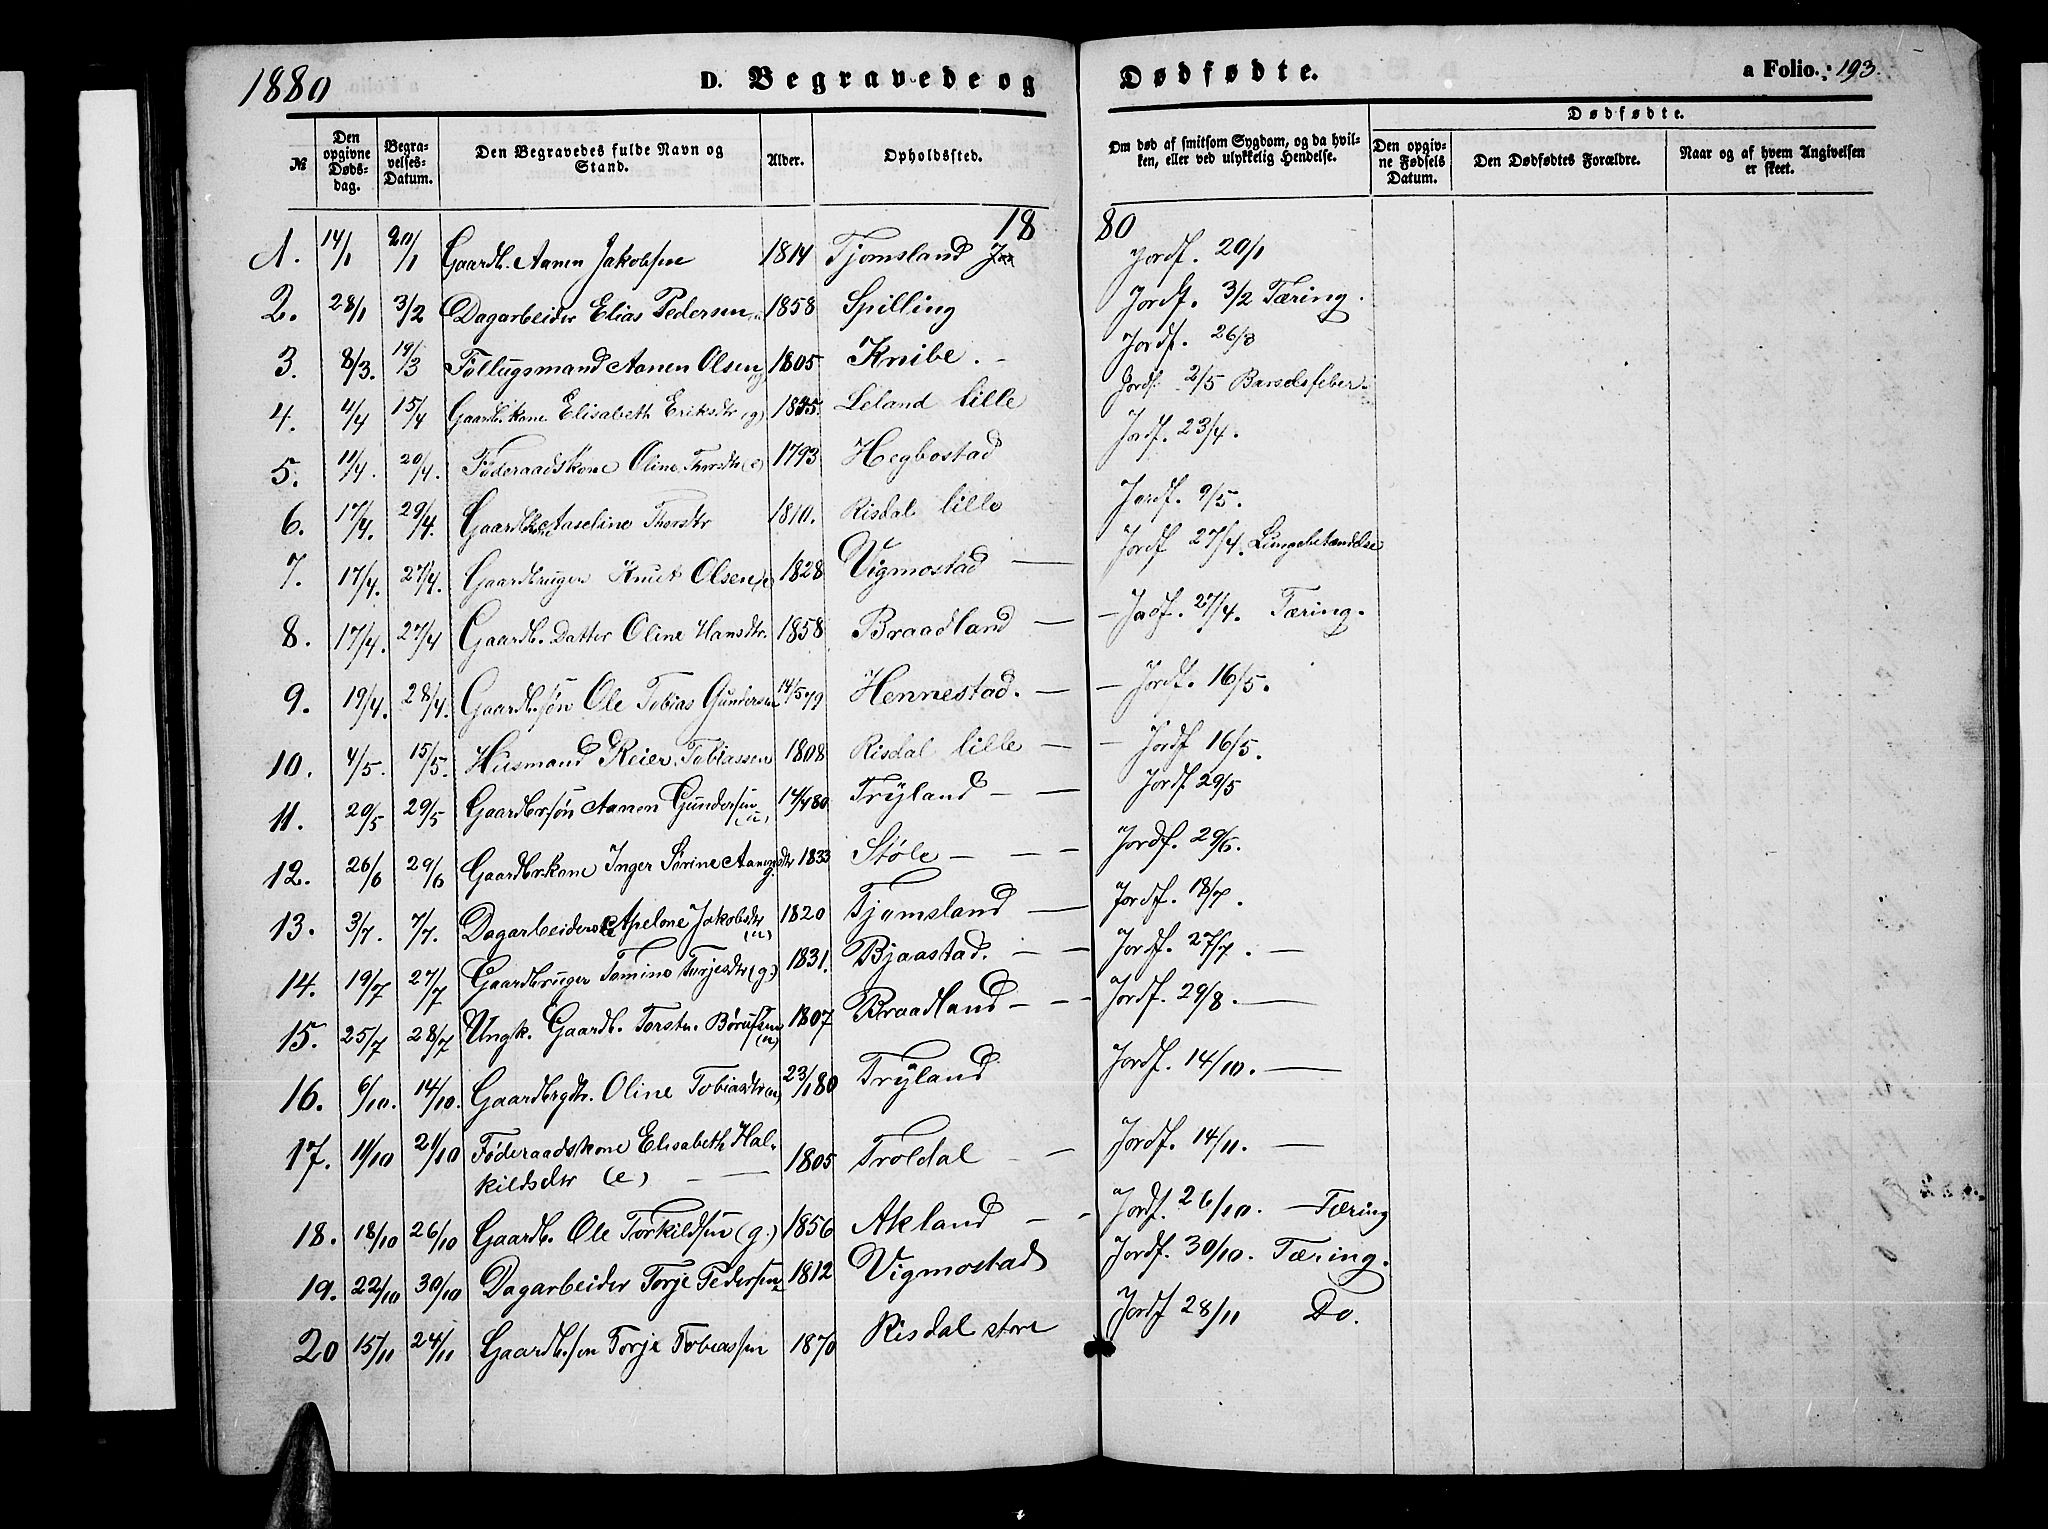 1880 D. Begravede og Dødfødte. a Folio. 193.
№ Den opgivne Døds-dag. Begra-velses-Datum. Den Begravedes fulde Navn og Stand. Alder. Opholdssted. Om død af smitsom Sygdom, og da hvil-ken, eller ved ulykkelig Hendelse. Dødfødte. Den opgiv-ne Fødsels Datum. Den Dødfødtes Forældre. Naar og af hvem Angivelsen er skeet.
1880
1. 14/1 20/1 Gaardb. Aanen Jakobsen 1814 Tjomsland Jordf. 20/1
2. 28/1 3/2 Dagarbeider Elias Pedersen 1858 Spilling Jordf. 3/2 Tæring.
3. 8/3. 19/3 Føllugsmand Aanen Olsen 1805 Knibe. – Jordf. 26/3
4. 4/4 15/4 Gaardb.kone Elisabeth Eriksdtr (g) 1835. Leland lille Jordf. 2/5 Barselsfeber.
5. 11/4. 20/4. Føderaadskone Oline Thorsdtr (e) 1793 Hegbostad Jordf. 23/4.
6. 17/4. 29/4. Gaardbkone Aaseline Thorsdtr 1810. Risdal lille Jordf. 9/5.
7. 17/4. 27/4. Gaardbruger Knut Olsen (e) 1828 Vigmostad — Jordf 27/4. Lungebetændelse
8. 17/4. 27/4 Gaardb. Datter Oline Hansdtr. 1858 Braadland — — Jordf. 27/4. Tæring.
9. 19/4. 28/4. Gaardb.søn Ole Tobias Gundersen 14/5 79 Hennestad. — — Jordf. 16/5.
10. 4/5. 15/5. Husmand Reier Tobiassen 1808 Risdal lille — — Jordf 16/5.
11. 20/5 29/5 Gaardbrsøn Aanen Gundersen (u) 14/4 80 Trÿland — — Jordf 29/5
12. 26/6 29/6 Gaardbrkone Inger Sørine Aanensdtr g. 1833 Støle — — — Jordf. 29/6.
13. 3/7. 7/7. Dagarbeiderske Apelone Jakobsdtr (u) 1820 Tjomsland — Jordf. 18/7.
14. 19/7 27/7 Gaardbruger Tomine Torjesdtr (g.) 1831. Bjaastad. — — Jordf. 27/7. —
15. 25/7 28/7 Ungk. Gaardb. Torstn. Børufsen (u) 1807 Braadland — — — Jordf. 29/8. —
16. 6/10. 14/10. Gaardbrgdtr. Oline Tobiasdtr (u) 23/1 80 Trÿland Jordf. 14/10. —
17. 11/10 21/10 Føderaadskone Elisabeth Hal-
kildsdtr (e) — — 1805 Troldal — — Jordf. 14/11. —
18. 18/10 26/10 Gaardb. Ole Torkildsen (g.) 1856 Akland — - Jordf. 26/10. — Tæring
19. 22/10 30/10 Dagarbeider Torje Pedersen 1812 Vigmostad Jordf. 30/10. Tæring.
20 15/11 24/11 Gaardb.sen Torje Tobiassen 1870 Risdal store Jordf 28/11 Do.